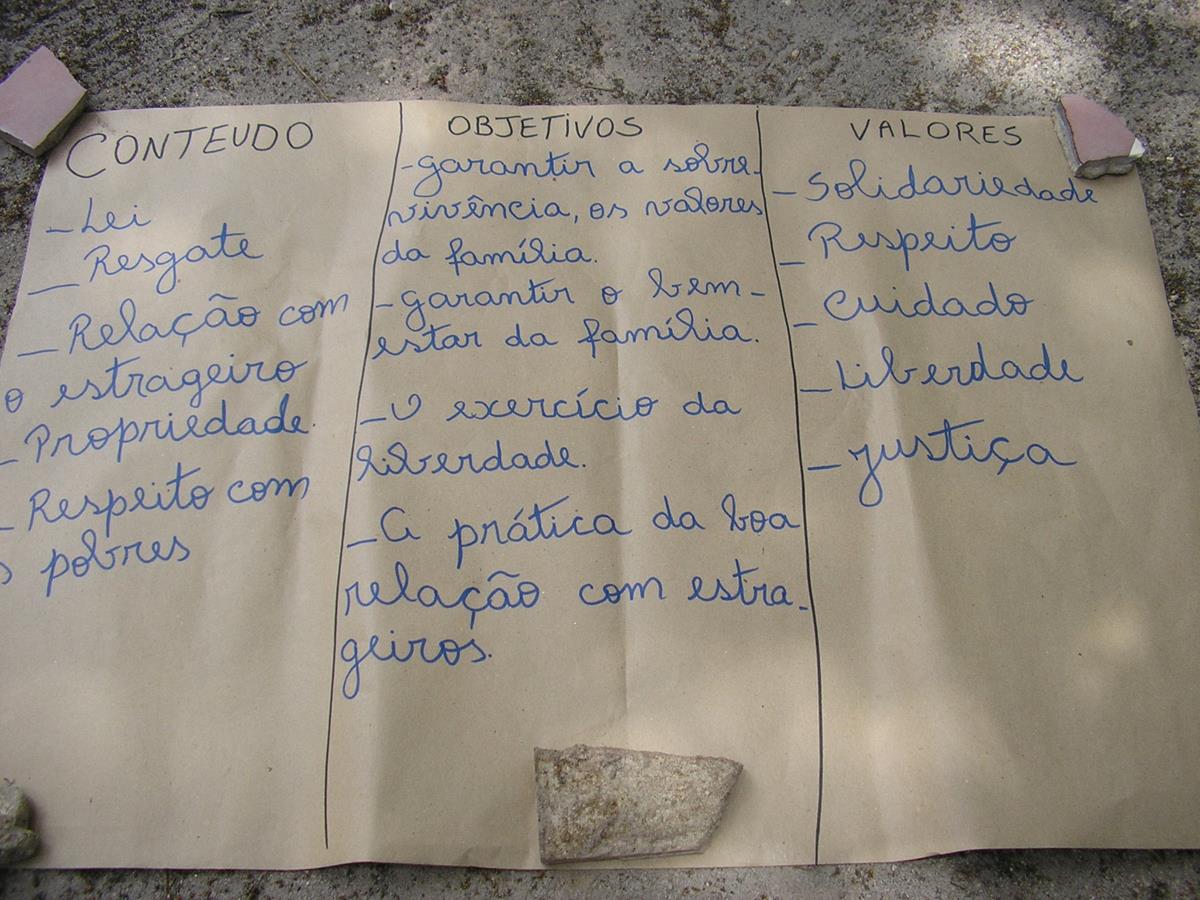 CONTEUDO
- Lei
- Resgate
- Relação com
o estrageiro
- Propriedade.
- Respeito com
s pobres
OBJETIVOS
- garantir a sobre-
vivência, os valores
da família.
- garantir o bem-
estar da família.
- O exercício da
liberdade.
- A prática da boa
relação com estra-
geiros.
VALORES
- Solidariedade
- Respeito
- Cuidado
- Liberdade
- justiça